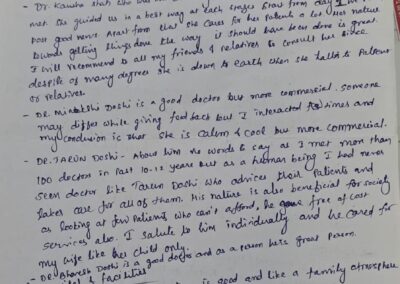 - Dr. Kausha shah who was
met. She guided us in a best way at each stages start from day 1
post good news. Apart from that she cares for her patients a lot. Her nature
towards getting things done the way it should have been done is great.
I will recommend to all my friends & relatives to consult her since
despite of many degrees she is down to earth when she talks to Patient
or relatives.
- DR. Minakshi Doshi is a good doctor but more commercial. Someone
may differ while giving feed back but I interacted times and
my conclusion is that she is calm & cool but more commercial.
- DR. TARUN Doshi - About him no words to say as I met more than
100 doctors in Past 10-12 years but as a human being I had never
seen doctor like Tarun Doshi who advices their Patients and
takes care for all of them. His nature is also beneficial for society
as looking at few Patients who can't afford, he gave free of cost
services also. I salute to him individually and he cared for
my wife like her child only.
- DR. Bhavesh Doshi is a good doctor and as a person he is great Person.
& facilities
is good and like a family atmosphere